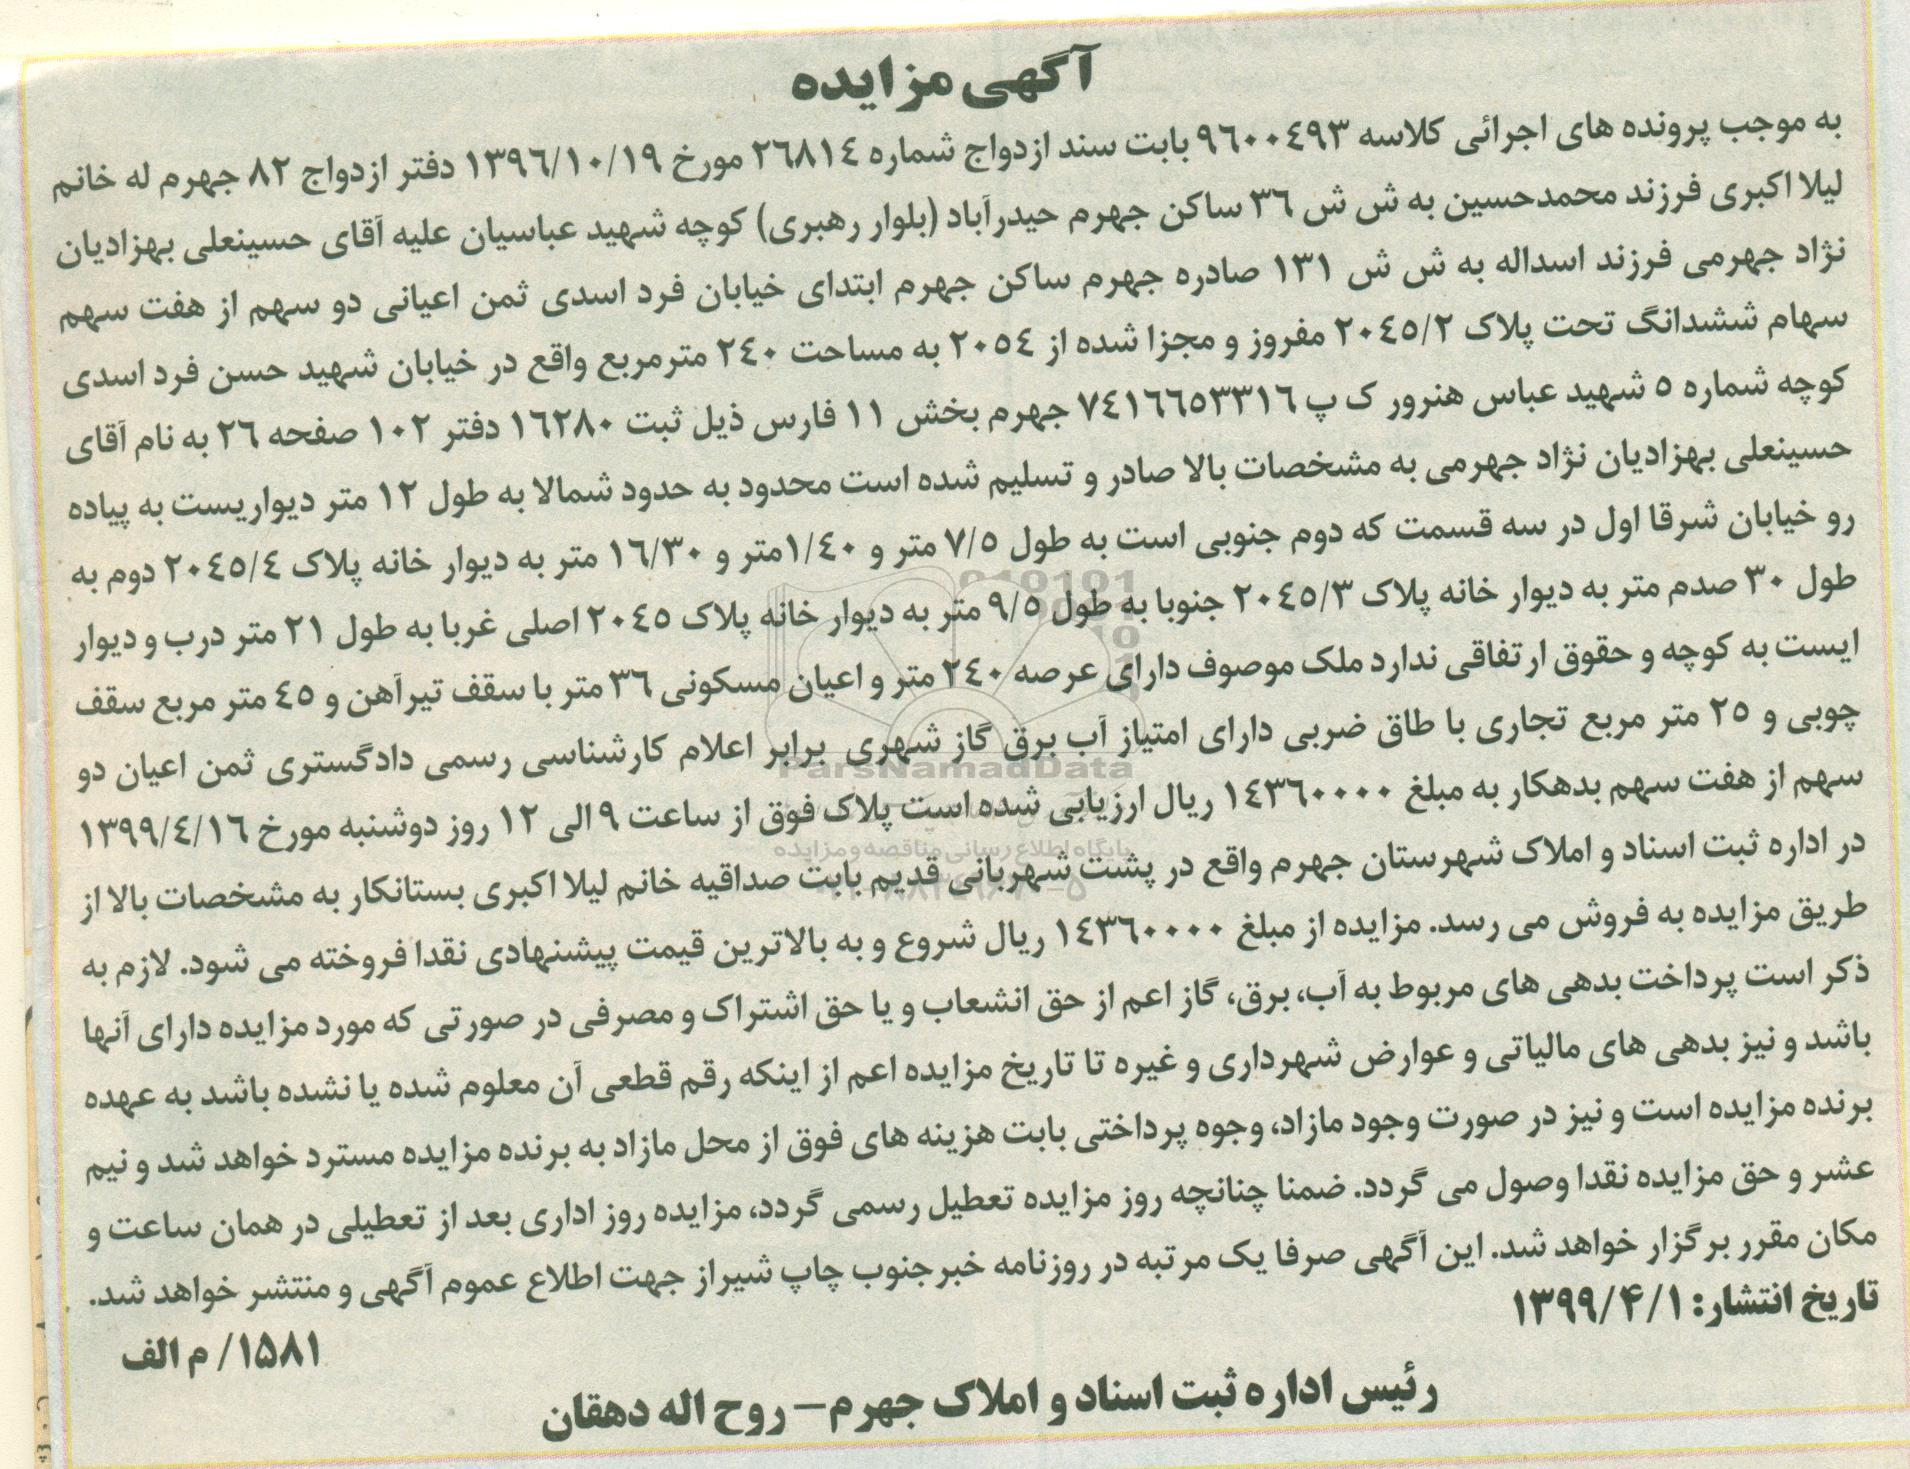 آگهی مزایده
به موجب پرونده های اجرائی کلاسه ۹۶۰۰۴۹۳ بابت سند ازدواج شماره ۲۶۸۱۴ مورخ ۱۳۹۶/۱۰/۱۹ دفتر ازدواج ۸۲ جهرم له خانم
لیلا اکبری فرزند محمدحسین به ش ش ۳۶ ساکن جهرم حیدرآباد (بلوار رهبری) کوچه شهید عباسیان علیه آقای حسینعلی بهزادیان
نژاد جهرمی فرزند اسداله به ش ش ۱۳۱ صادره جهرم ساکن جهرم ابتدای خیابان فرد اسدی ثمن اعیانی دو سهم از هفت سهم
سهام ششدانگ تحت پلاک ۲۰۴۵/۲ مفروز و مجزا شده از ۲۰۵۴ به مساحت ۲۴۰ مترمربع واقع در خیابان شهید حسن فرد اسدی
کوچه شماره ۵ شهید عباس هنرور ک پ ۷۴۱۶۶۵۳۳۱۶ جهرم بخش ۱۱ فارس ذیل ثبت ۱۶۲۸۰ دفتر ۱۰۲ صفحه ۲۶ به نام آقای
حسینعلی بهزادیان نژاد جهرمی به مشخصات بالا صادر و تسلیم شده است محدود به حدود شمالا به طول ۱۲ متر دیواریست به پیاده
رو خیابان شرقا اول در سه قسمت که دوم جنوبی است به طول ۷/۵ متر و ۱/۴۰متر و ۱۶/۳۰ متر به دیوار خانه پلاک ۲۰۴۵/۴ دوم به
طول ۳۰ صدم متر به دیوار خانه پلاک ۲۰۴۵/۳ جنوبا به طول ۹/۵ متر به دیوار خانه پلاک ۲۰۴۵ اصلی غربا به طول ۲۱ متر درب و دیوار
ایست به کوچه و حقوق ارتفاقی ندارد ملک موصوف دارای عرصه ۲۴۰ متر و اعیان مسکونی ۳۶ متر با سقف تیرآهن و ۴۵ متر مربع سقف
چوبی و ۲۵ متر مربع تجاری با طاق ضربی دارای امتیاز آب برق گاز شهری برابر اعلام کارشناسی رسمی دادگستری ثمن اعیان دو
سهم از هفت سهم بدهکار به مبلغ ۱۴۳۶۰۰۰۰ ریال ارزیابی شده است پلاک فوق از ساعت ۹ الی ۱۲ روز دوشنبه مورخ ۱۳۹۹/۴/۱۶
در اداره ثبت اسناد و املاک شهرستان جهرم واقع در پشت شهربانی قدیم بابت صداقیه خانم لیلا اکبری بستانکار به مشخصات بالا از
طریق مزایده به فروش می رسد. مزایده از مبلغ ۱۴۳۶۰۰۰۰ ریال شروع و به بالاترین قیمت پیشنهادی نقدا فروخته می شود. لازم به
ذکر است پرداخت بدهی های مربوط به آب، برق، گاز اعم از حق انشعاب و یا حق اشتراک و مصرفی در صورتی که مورد مزایده دارای آنها
باشد و نیز بدهی های مالیاتی و عوارض شهرداری و غیره تا تاریخ مزایده اعم از اینکه رقم قطعی آن معلوم شده یا نشده باشد به عهده
برنده مزایده است و نیز در صورت وجود مازاد، وجوه پرداختی بابت هزینه های فوق از محل مازاد به برنده مزایده مسترد خواهد شد و نیم
عشر و حق مزایده نقدا وصول می گردد. ضمنا چنانچه روز مزایده تعطیل رسمی گردد، مزایده روز اداری بعد از تعطیلی در همان ساعت و
مکان مقرر برگزار خواهد شد. این آگهی صرفا یک مرتبه در روزنامه خبرجنوب چاپ شیراز جهت اطلاع عموم آگهی و منتشر خواهد شد.
تاریخ انتشار: ۱۳۹۹/۴/۱
۱۵۸۱/ م الف
رئیس اداره ثبت اسناد و املاک جهرم– روح اله دهقان
ParsNamadData
پایگاه اطلاع رسانی مناقصه و مزایده